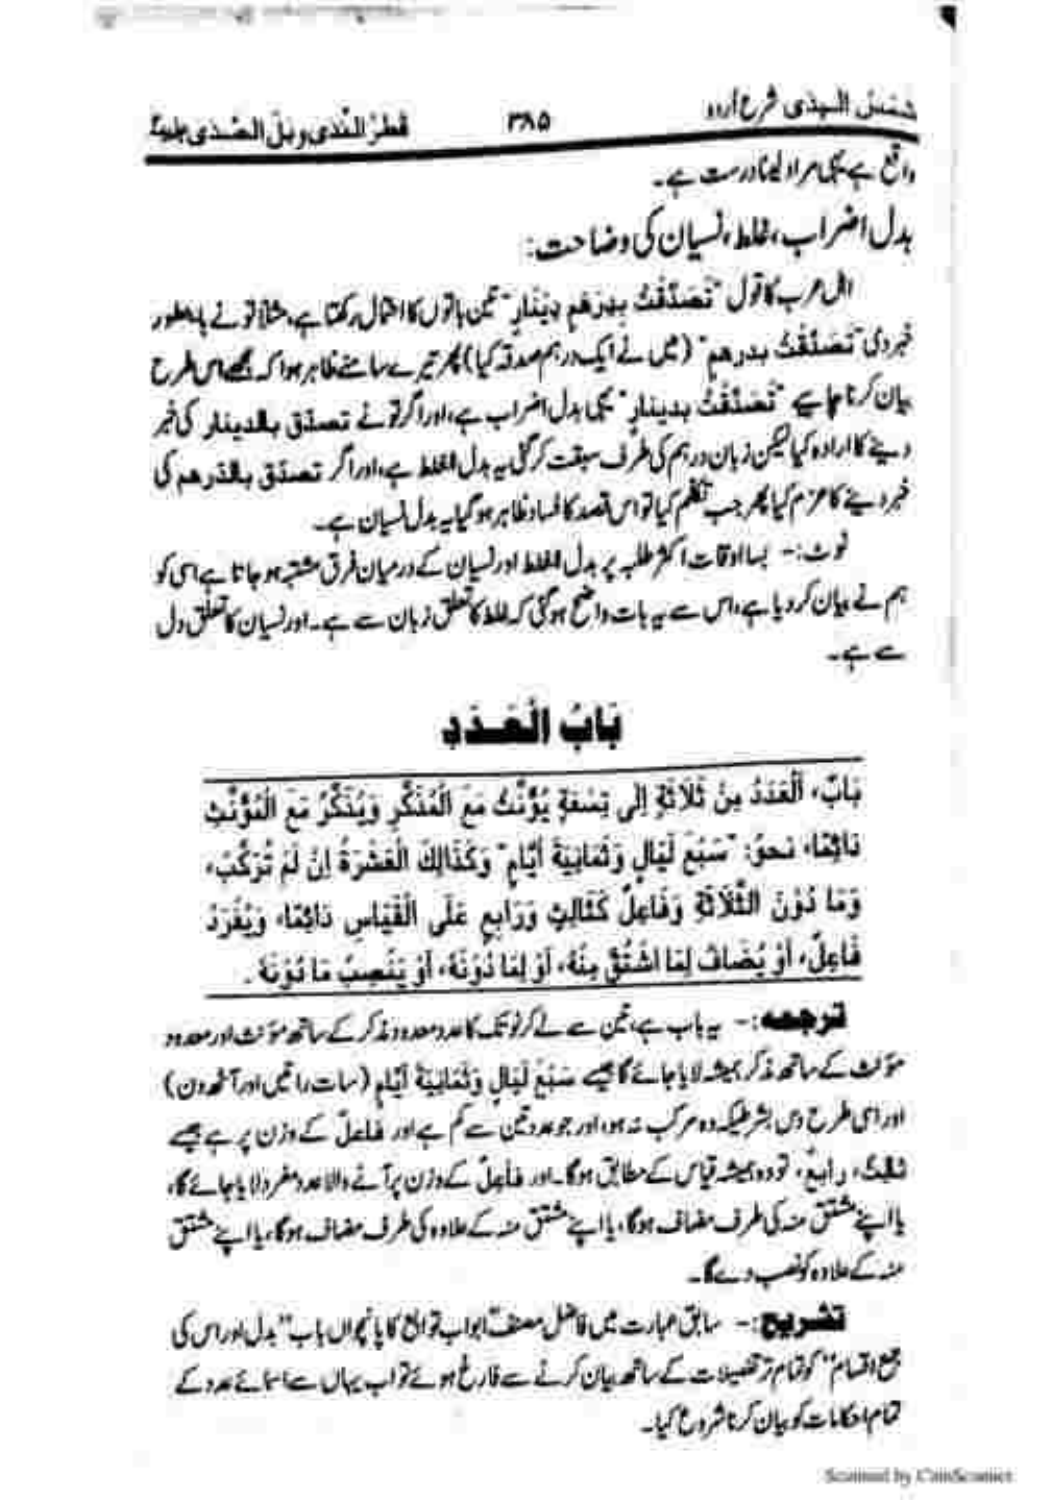 شمس الہدی شرح اردو ۳۸۵ قطر الندی وبل الصدی
واقع ہے یہی مراد لینا درست ہے۔
بدل اضراب، غلط، نسیان کی وضاحت:
اہل عرب کا قول "تَصَدَّقْتُ بِدِرْهَمٍ دِيْنَارٍ" تین باتوں کا احتمال رکھتا ہے، مثلاً تو نے بایں طور
خبر دی "تَصَدَّقْتُ بدرهم" (میں نے ایک درہم صدقہ کیا) پھر تیرے سامنے ظاہر ہوا کہ مجھے اس طرح
بیان کرنا چاہیے "تَصَدَّقْتُ بدينارٍ" یہی بدل اضراب ہے، اور اگر تو نے تصدّق بالدینار کی خبر
دینے کا ارادہ کیا لیکن زبان درہم کی طرف سبقت کر گئی یہ بدل الغلط ہے، اور اگر تصدّق بالدّرهم کی
خبر دینے کا عزم کیا پھر جب تکلم کیا تو اس قصد کا فساد ظاہر ہو گیا یہ بدل نسیان ہے۔
نوٹ:- بسا اوقات اکثر طلبہ پر بدل الغلط اور نسیان کے درمیان فرق مشتبہ ہو جاتا ہے اسی کو
ہم نے بیان کر دیا ہے، اس سے یہ بات واضح ہو گئی کہ غلط کا تعلق زبان سے ہے۔ اور نسیان کا تعلق دل
سے ہے۔
بَابُ الْعَدَدِ
بَابٌ، اَلْعَدَدُ مِنْ ثَلَاثَةٍ إِلٰى تِسْعَةٍ يُؤَنَّثُ مَعَ الْمُذَكَّرِ وَيُذَكَّرُ مَعَ الْمُؤَنَّثِ
دَائِمًا، نحوُ: "سَبْعَ لَيَالٍ وَثَمَانِيَةَ أَيَّامٍ" وَكَذَالِكَ الْعَشْرَةُ اِنْ لَمْ تُرَكَّبْ،
وَمَا دُوْنَ الثَّلَاثَةِ وَفَاعِلٌ كَثَالِثٍ وَرَابِعٍ عَلَى الْقِيَاسِ دَائِمًا، وَيُفْرَدُ
فَاعِلٌ، أَوْ يُضَافُ لِمَا اشْتُقَّ مِنْهُ، أَوْ لِمَا دُوْنَهُ، أَوْ يَنْصِبُ مَا دُوْنَهُ۔
ترجمہ:- یہ باب ہے، تین سے لے کر نو تک کا عدد معدود مذکر کے ساتھ مؤنث اور معدود
مؤنث کے ساتھ مذکر ہمیشہ لایا جائے گا جیسے سَبْعَ لَيَالٍ وَثَمَانِيَةَ أَيَّامٍ (سات راتیں اور آٹھ دن)
اور اسی طرح دس بشرطیکہ وہ مرکب نہ ہو، اور جو عدد تین سے کم ہے اور فاعلٌ کے وزن پر ہے جیسے
ثالثٌ، رابعٌ، تو وہ ہمیشہ قیاس کے مطابق ہوگا۔ اور فاعِلٌ کے وزن پر آنے والا عدد مفرد لایا جائے گا،
یا اپنے مشتق منہ کی طرف مضاف ہوگا، یا اپنے مشتق منہ کے علاوہ کی طرف مضاف ہوگا، یا اپنے مشتق
منہ کے علاوہ کو نصب دے گا۔
تشریح:- سابق عبارت میں فاضل مصنفؒ ابواب توابع کا پانچواں باب "بدل اور اس کی
جمع اقسام" کو تمام تر تفصیلات کے ساتھ بیان کرنے سے فارغ ہوئے تو اب یہاں سے اسمائے عدد کے
تمام احکامات کو بیان کرنا شروع کیا۔
Scanned by CamScanner